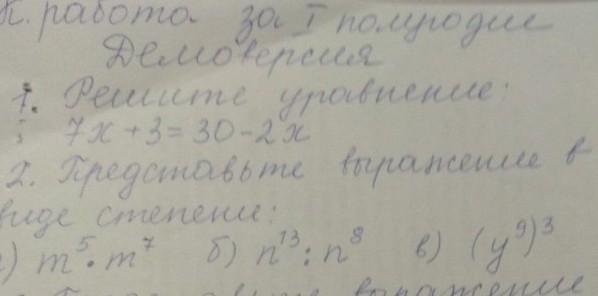 К. работа за I полугодие
Демоверсия
1. Решите уравнение:
7x + 3 = 30 - 2x
2. Представьте выражение в
виде степени:
) m⁵ · m⁷ б) n¹³ : n⁸ в) (y⁹)³
выражение